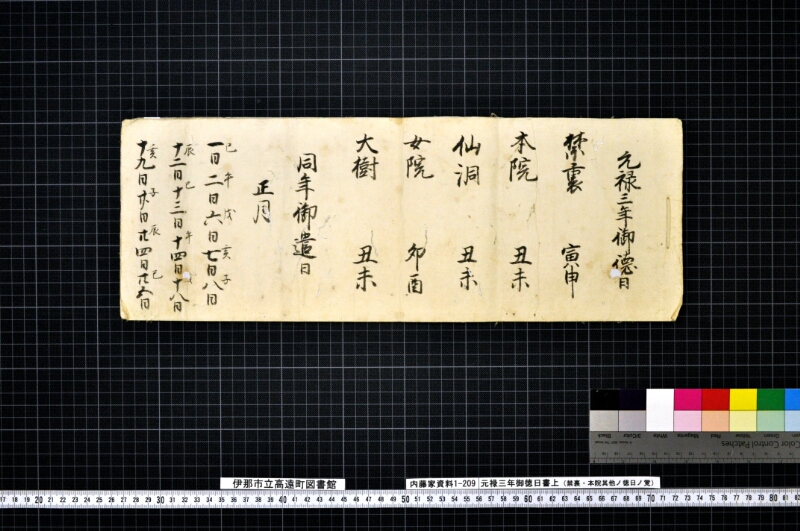 元禄三年御徳日
禁裏 寅申
本院 丑未
仙洞 丑未
女院 卯酉
大樹 丑未
同年御遣日
正月
巳 午 戌 亥 子
一日 二日 六日 七日 八日
辰 巳 午
十二日 十三日 十四日 十八日
亥 子 辰 巳
十九日 廿日 廿四日 廿五日
伊那市立高遠町図書館
内藤家資料1-209 元禄三年御徳日書上 (禁裏・本院其他ノ徳日ノ覚)
Color Control Patches
Black
3/Color
White
Magenta
Red
Yellow
Green